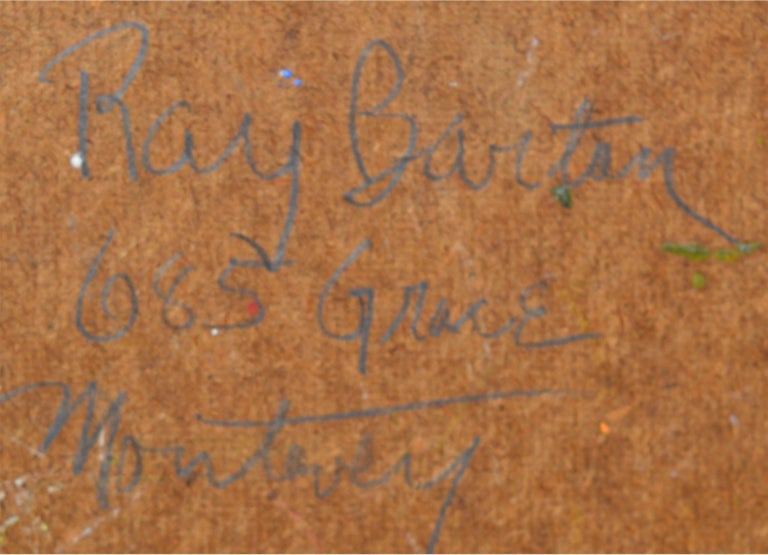 Ray Barton
685 Grace
Monterey